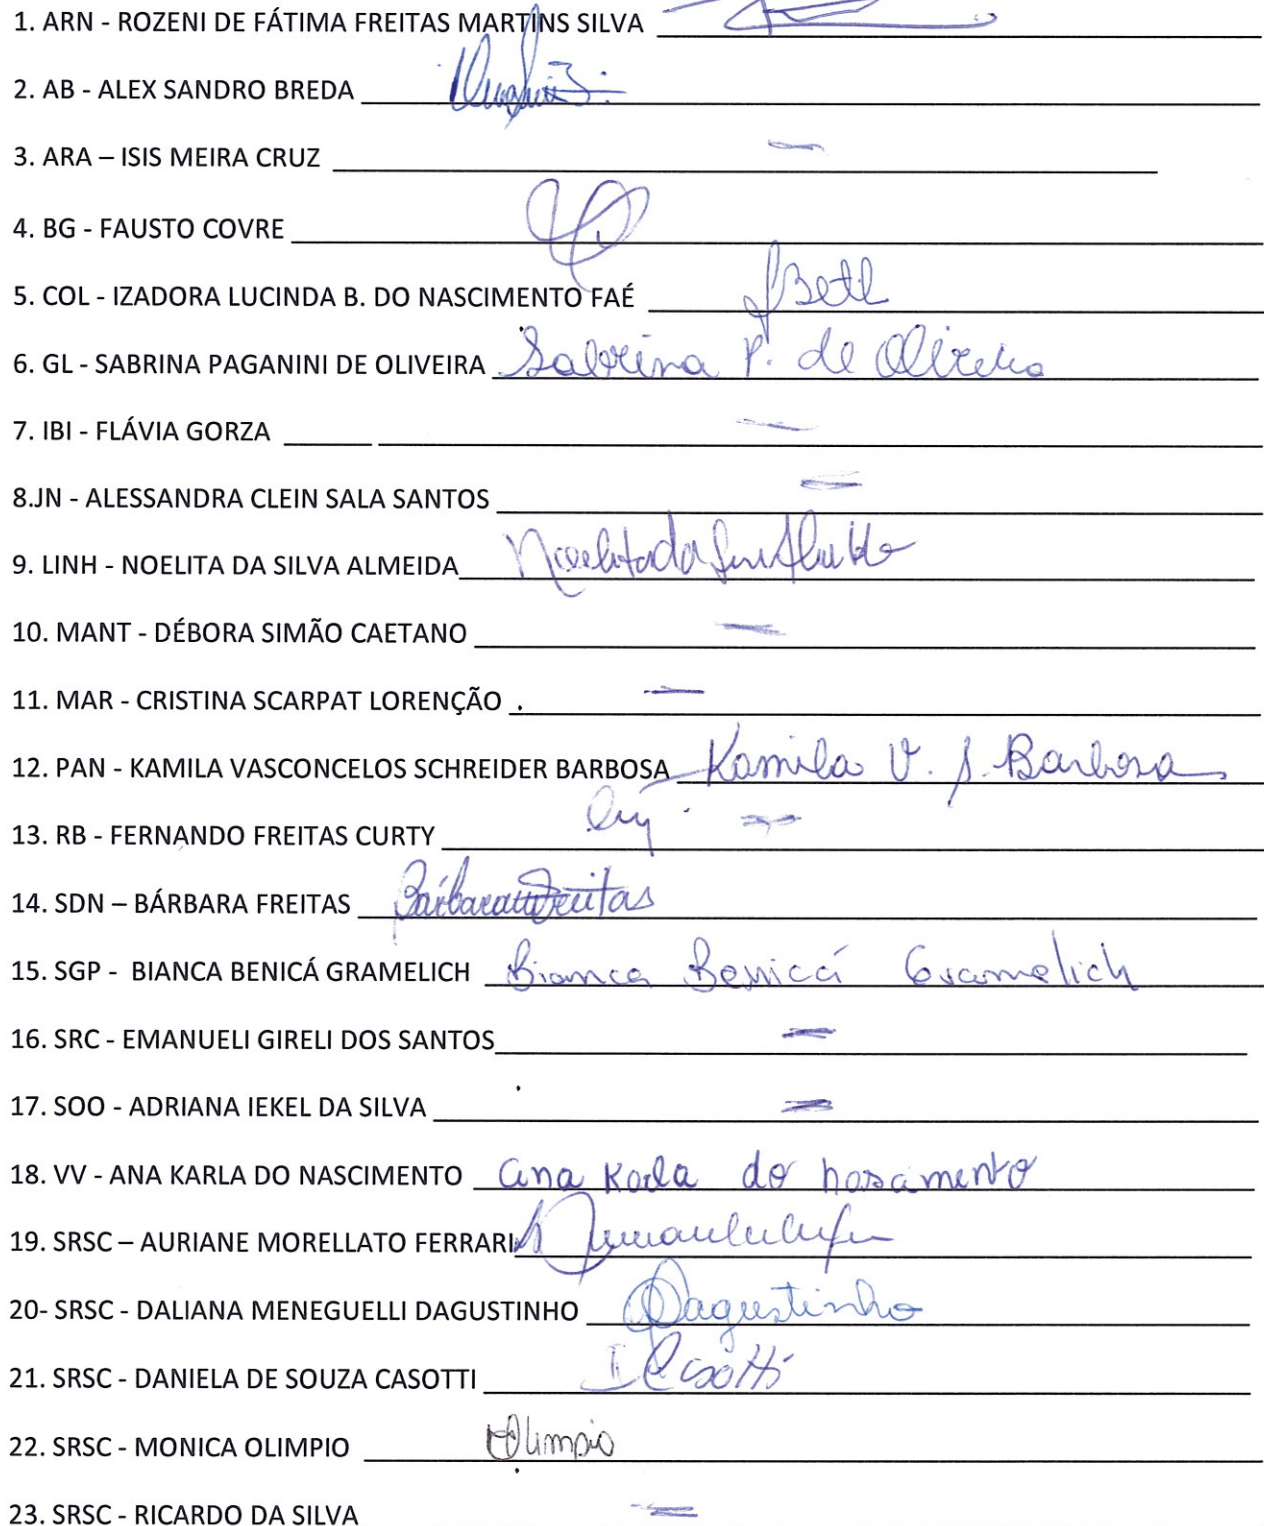 1. ARN - ROZENI DE FÁTIMA FREITAS MARTINS SILVA
2. AB - ALEX SANDRO BREDA
3. ARA – ISIS MEIRA CRUZ
4. BG - FAUSTO COVRE
5. COL - IZADORA LUCINDA B. DO NASCIMENTO FAÉ
6. GL - SABRINA PAGANINI DE OLIVEIRA Sabrina P. de Oliveira
7. IBI - FLÁVIA GORZA
8.JN - ALESSANDRA CLEIN SALA SANTOS
9. LINH - NOELITA DA SILVA ALMEIDA Noelita da
10. MANT - DÉBORA SIMÃO CAETANO
11. MAR - CRISTINA SCARPAT LORENÇÃO
12. PAN - KAMILA VASCONCELOS SCHREIDER BARBOSA Kamila V. S. Barbosa
13. RB - FERNANDO FREITAS CURTY
14. SDN – BÁRBARA FREITAS Bárbara Freitas
15. SGP - BIANCA BENICÁ GRAMELICH Bianca Benicá Gramelich
16. SRC - EMANUELI GIRELI DOS SANTOS
17. SOO - ADRIANA IEKEL DA SILVA
18. VV - ANA KARLA DO NASCIMENTO Ana Karla do nascimento
19. SRSC – AURIANE MORELLATO FERRARI
20- SRSC - DALIANA MENEGUELLI DAGUSTINHO Dagustinho
21. SRSC - DANIELA DE SOUZA CASOTTI Casotti
22. SRSC - MONICA OLIMPIO Olimpio
23. SRSC - RICARDO DA SILVA